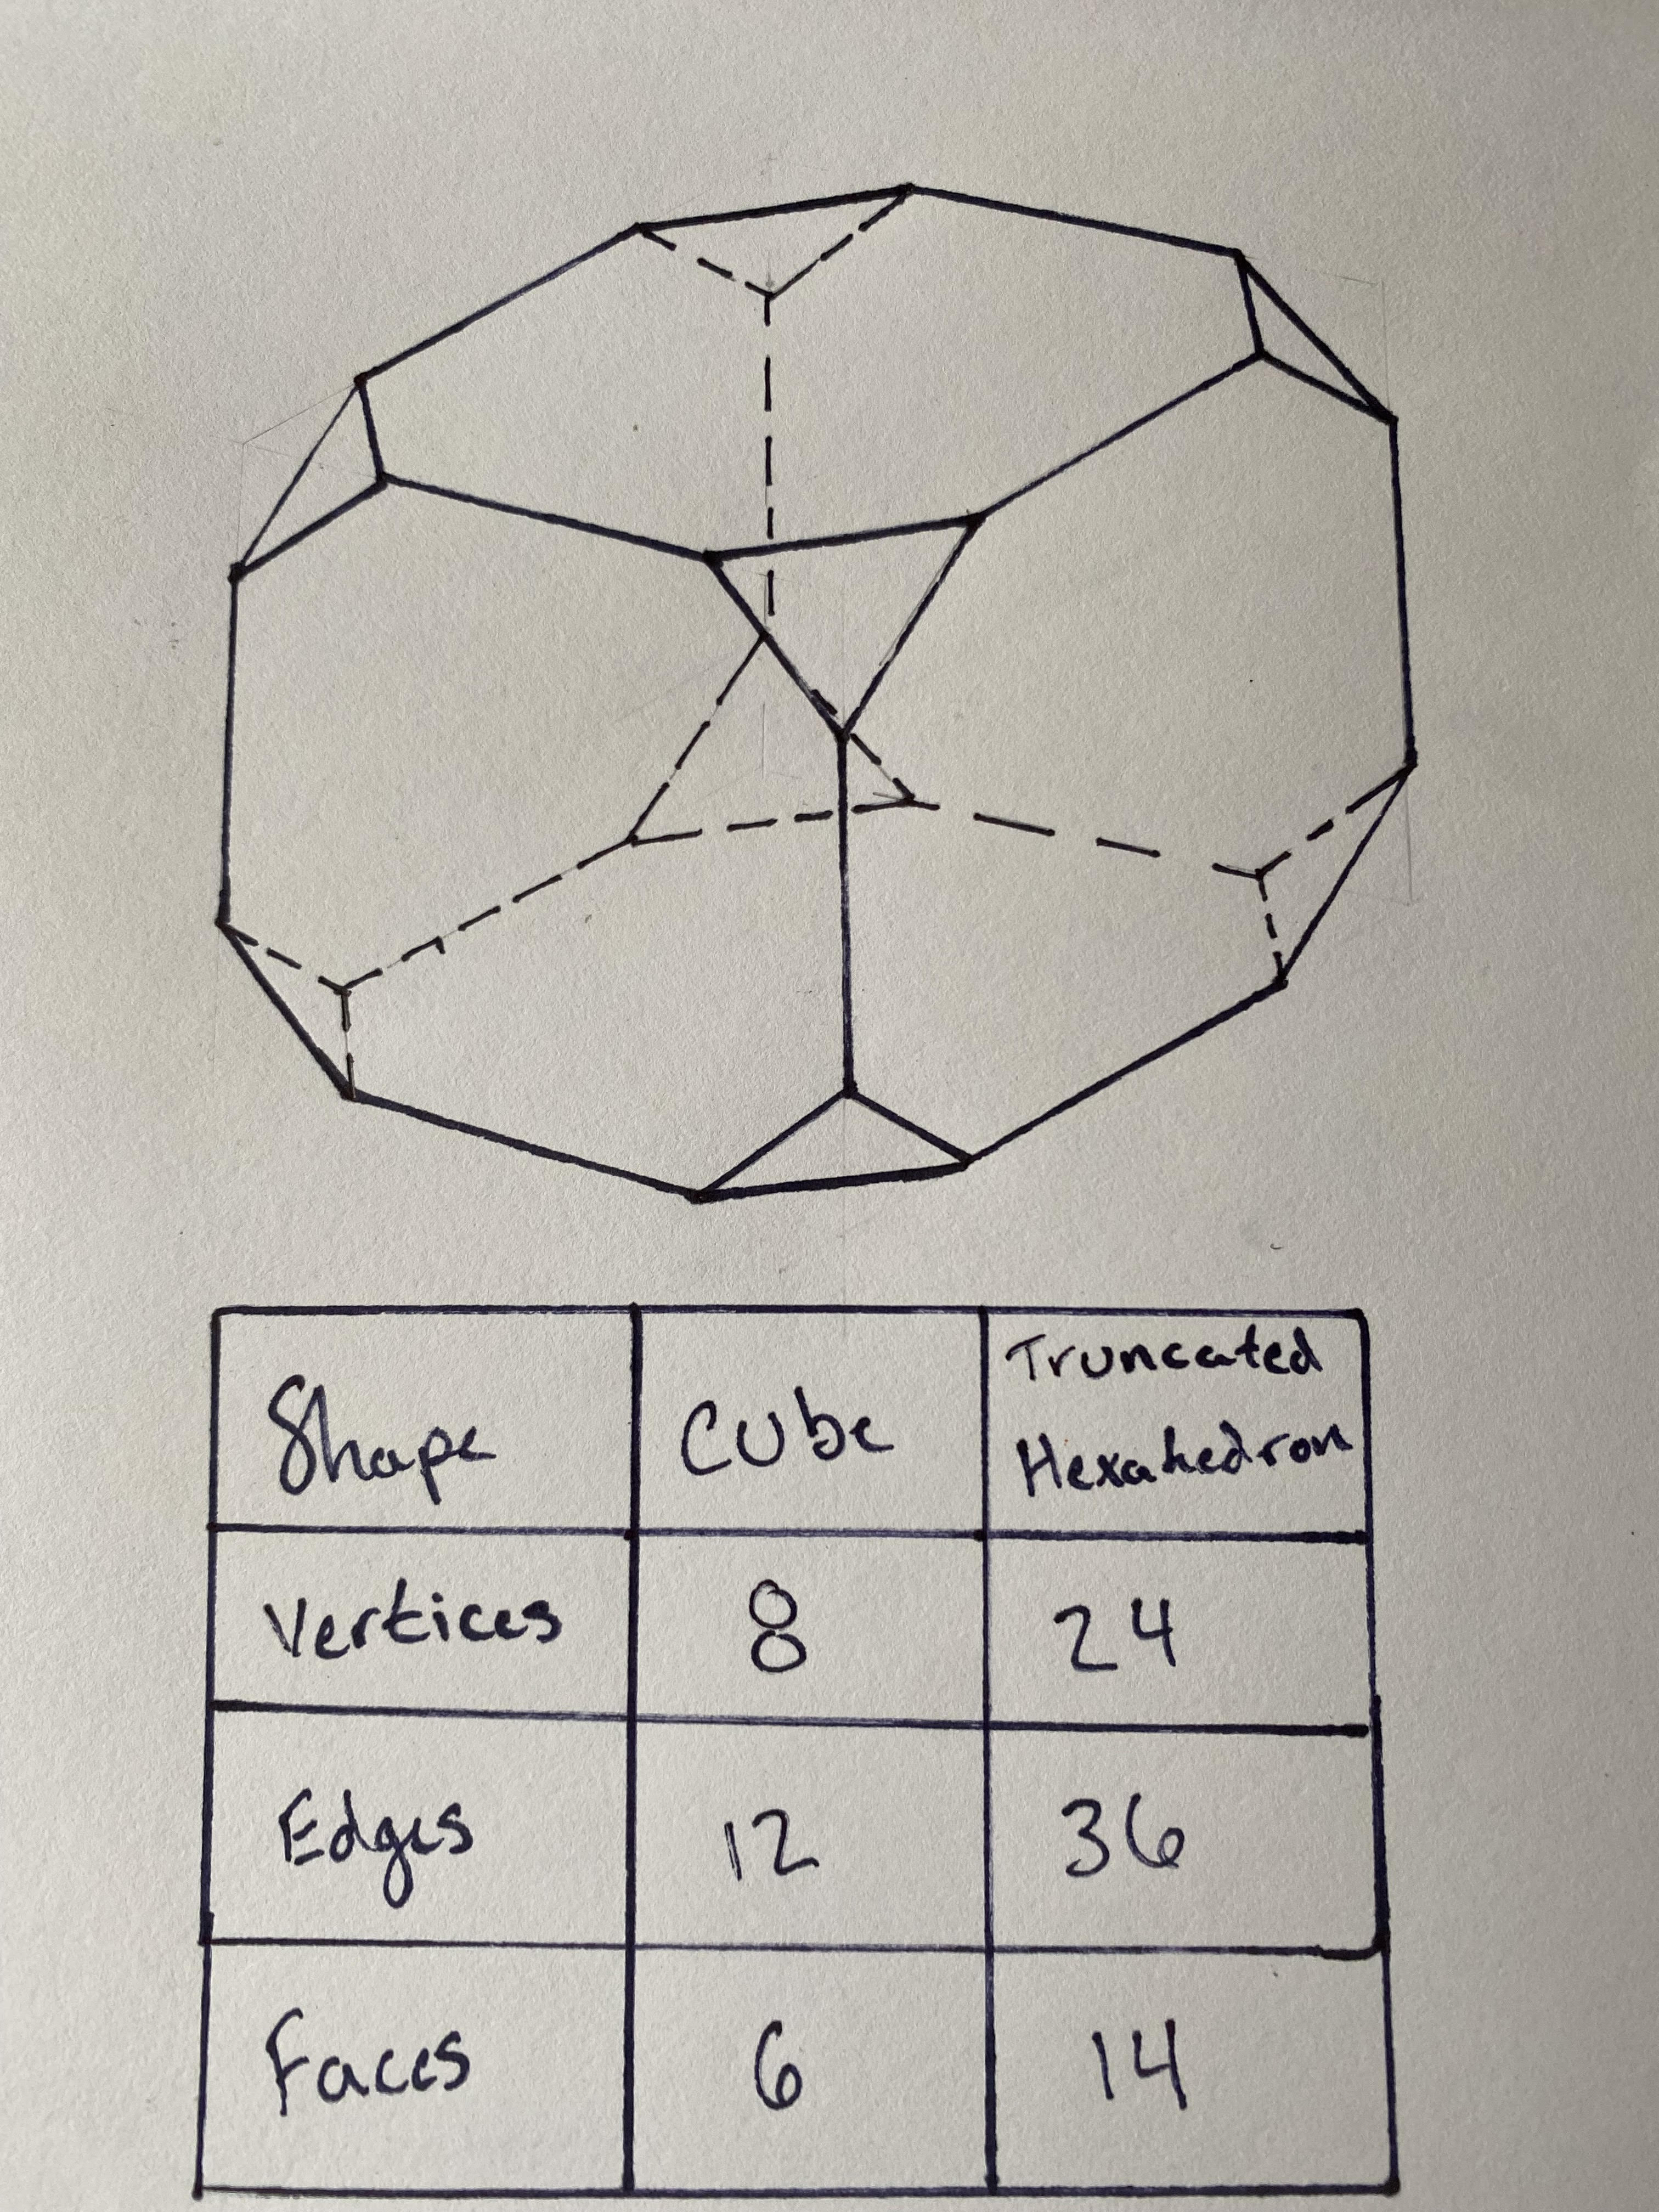 Shape Cube Truncated
Hexahedron
Vertices 8 24
Edges 12 36
Faces 6 14